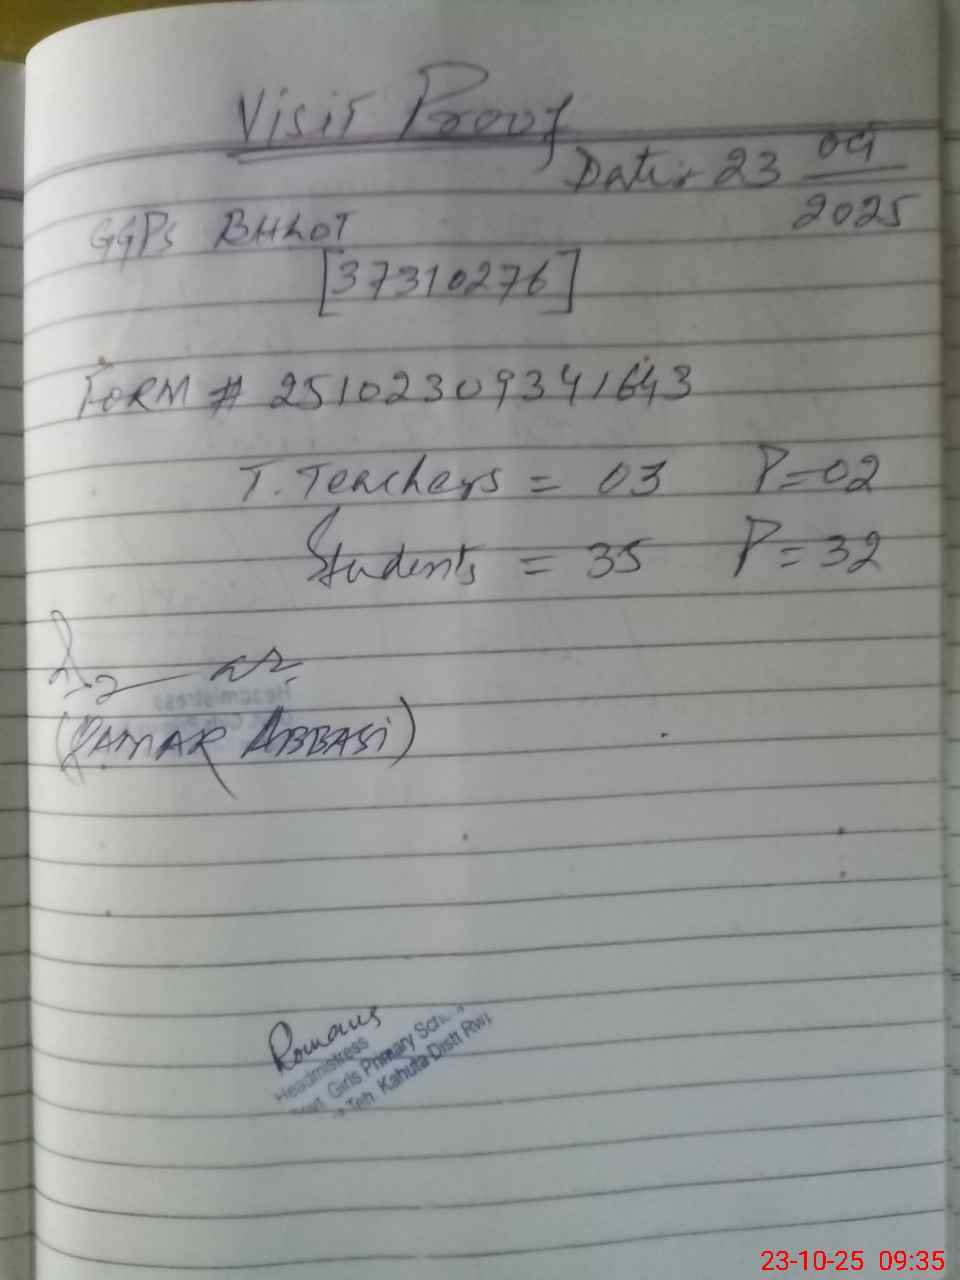 Visit Proof
Date:- 23 Oct
2025
GGPS BHLOT
[37310276]
FORM # 25102309341643
T. Teachers = 03 P=02
Students = 35 P=32
(QAMAR ABBASI)
Headmistress
Headmistress
Govt. Girls Primary
Teh Kahuta Distt Rwl
23-10-25 09:35